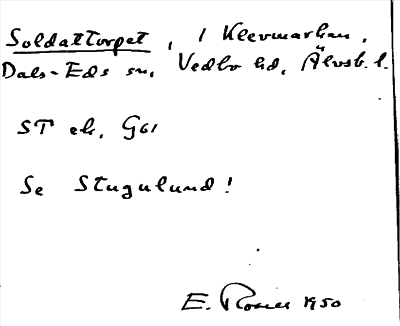 Soldattorpet, i Klevmarken,
Dals-Eds sn, Vedbo hd, Älvsb. l.
ST ek. G61
Se Stugulund!
E. Rosell 1950